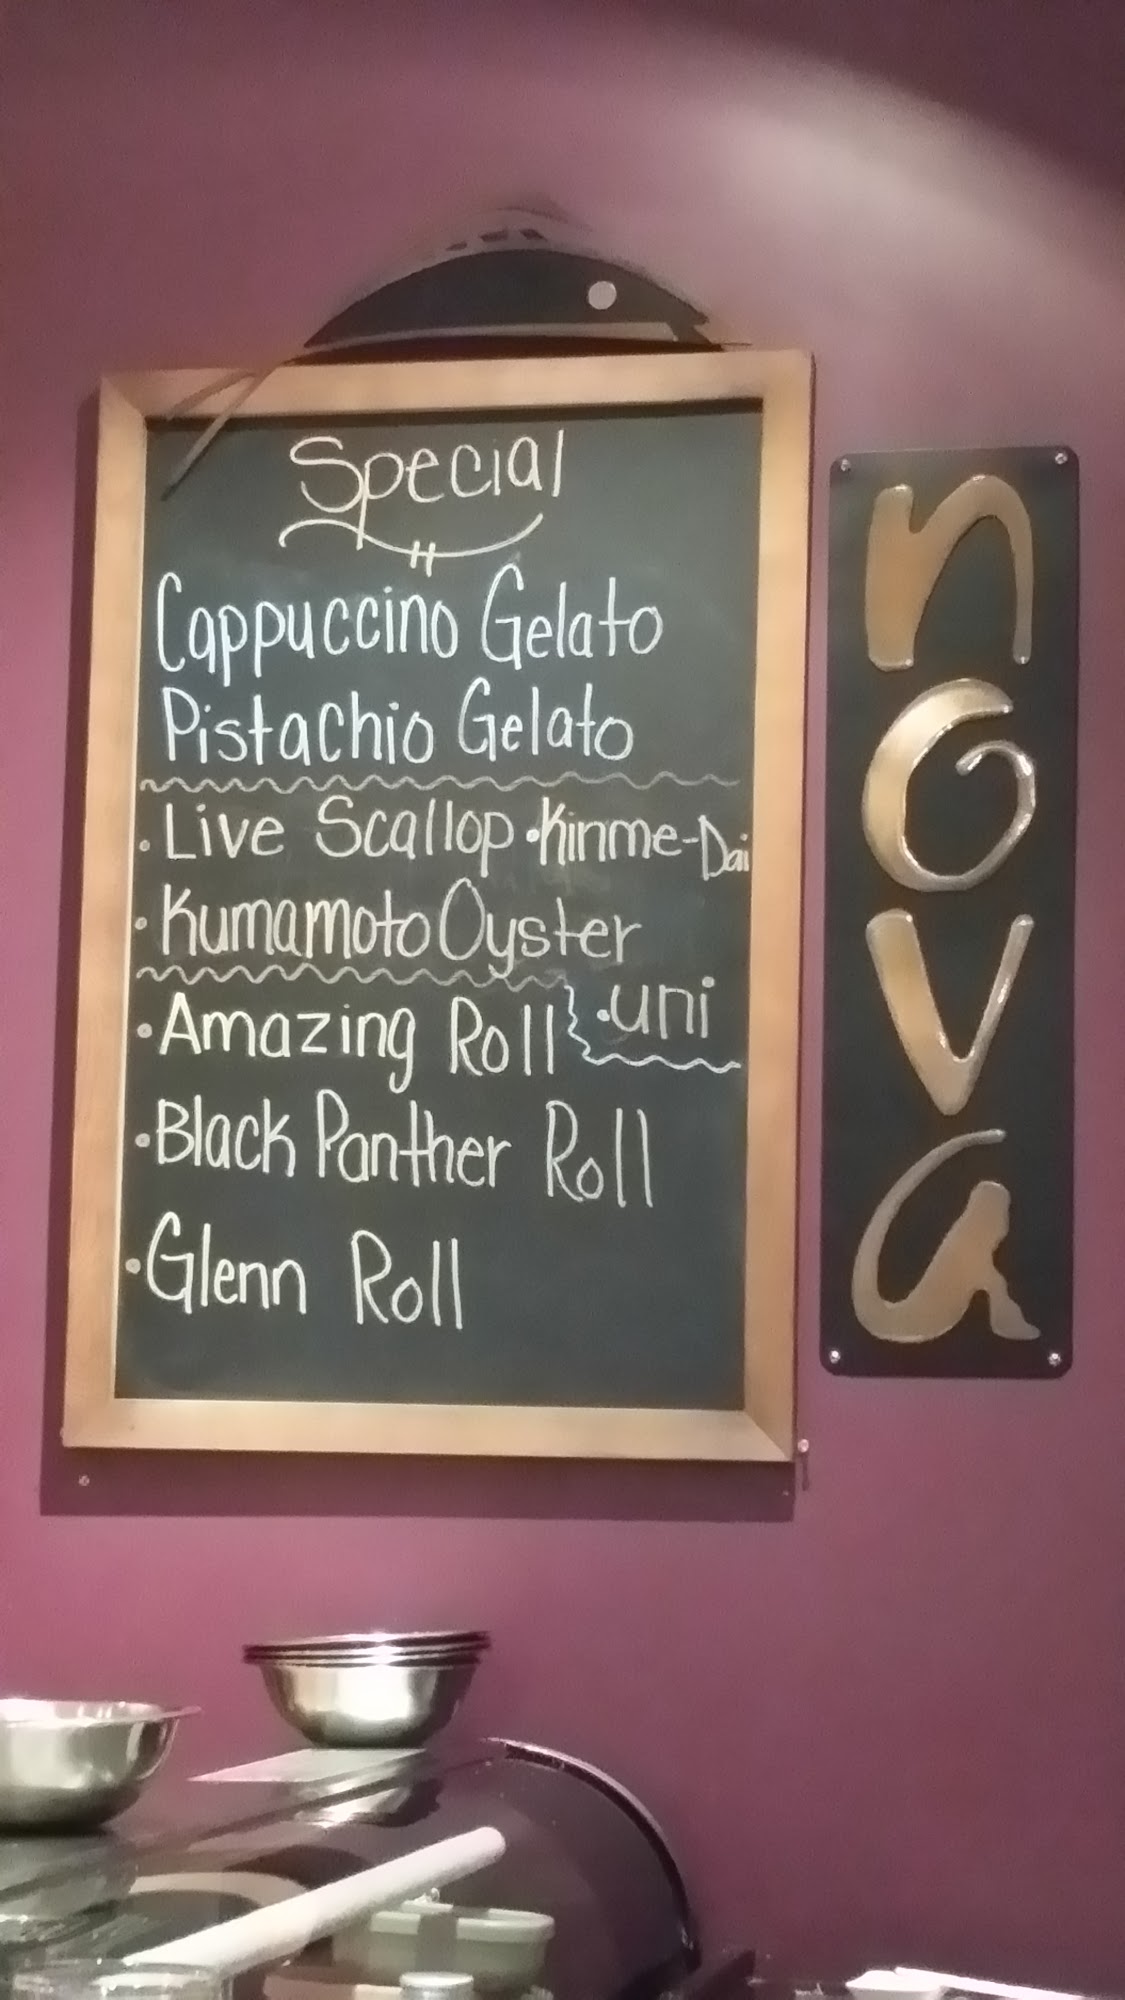 Special
Cappuccino Gelato
Pistachio Gelato
• Live Scallop • Kinme-Dai
• Kumamoto Oyster
• uni
• Amazing Roll
• Black Panther Roll
• Glenn Roll
nova